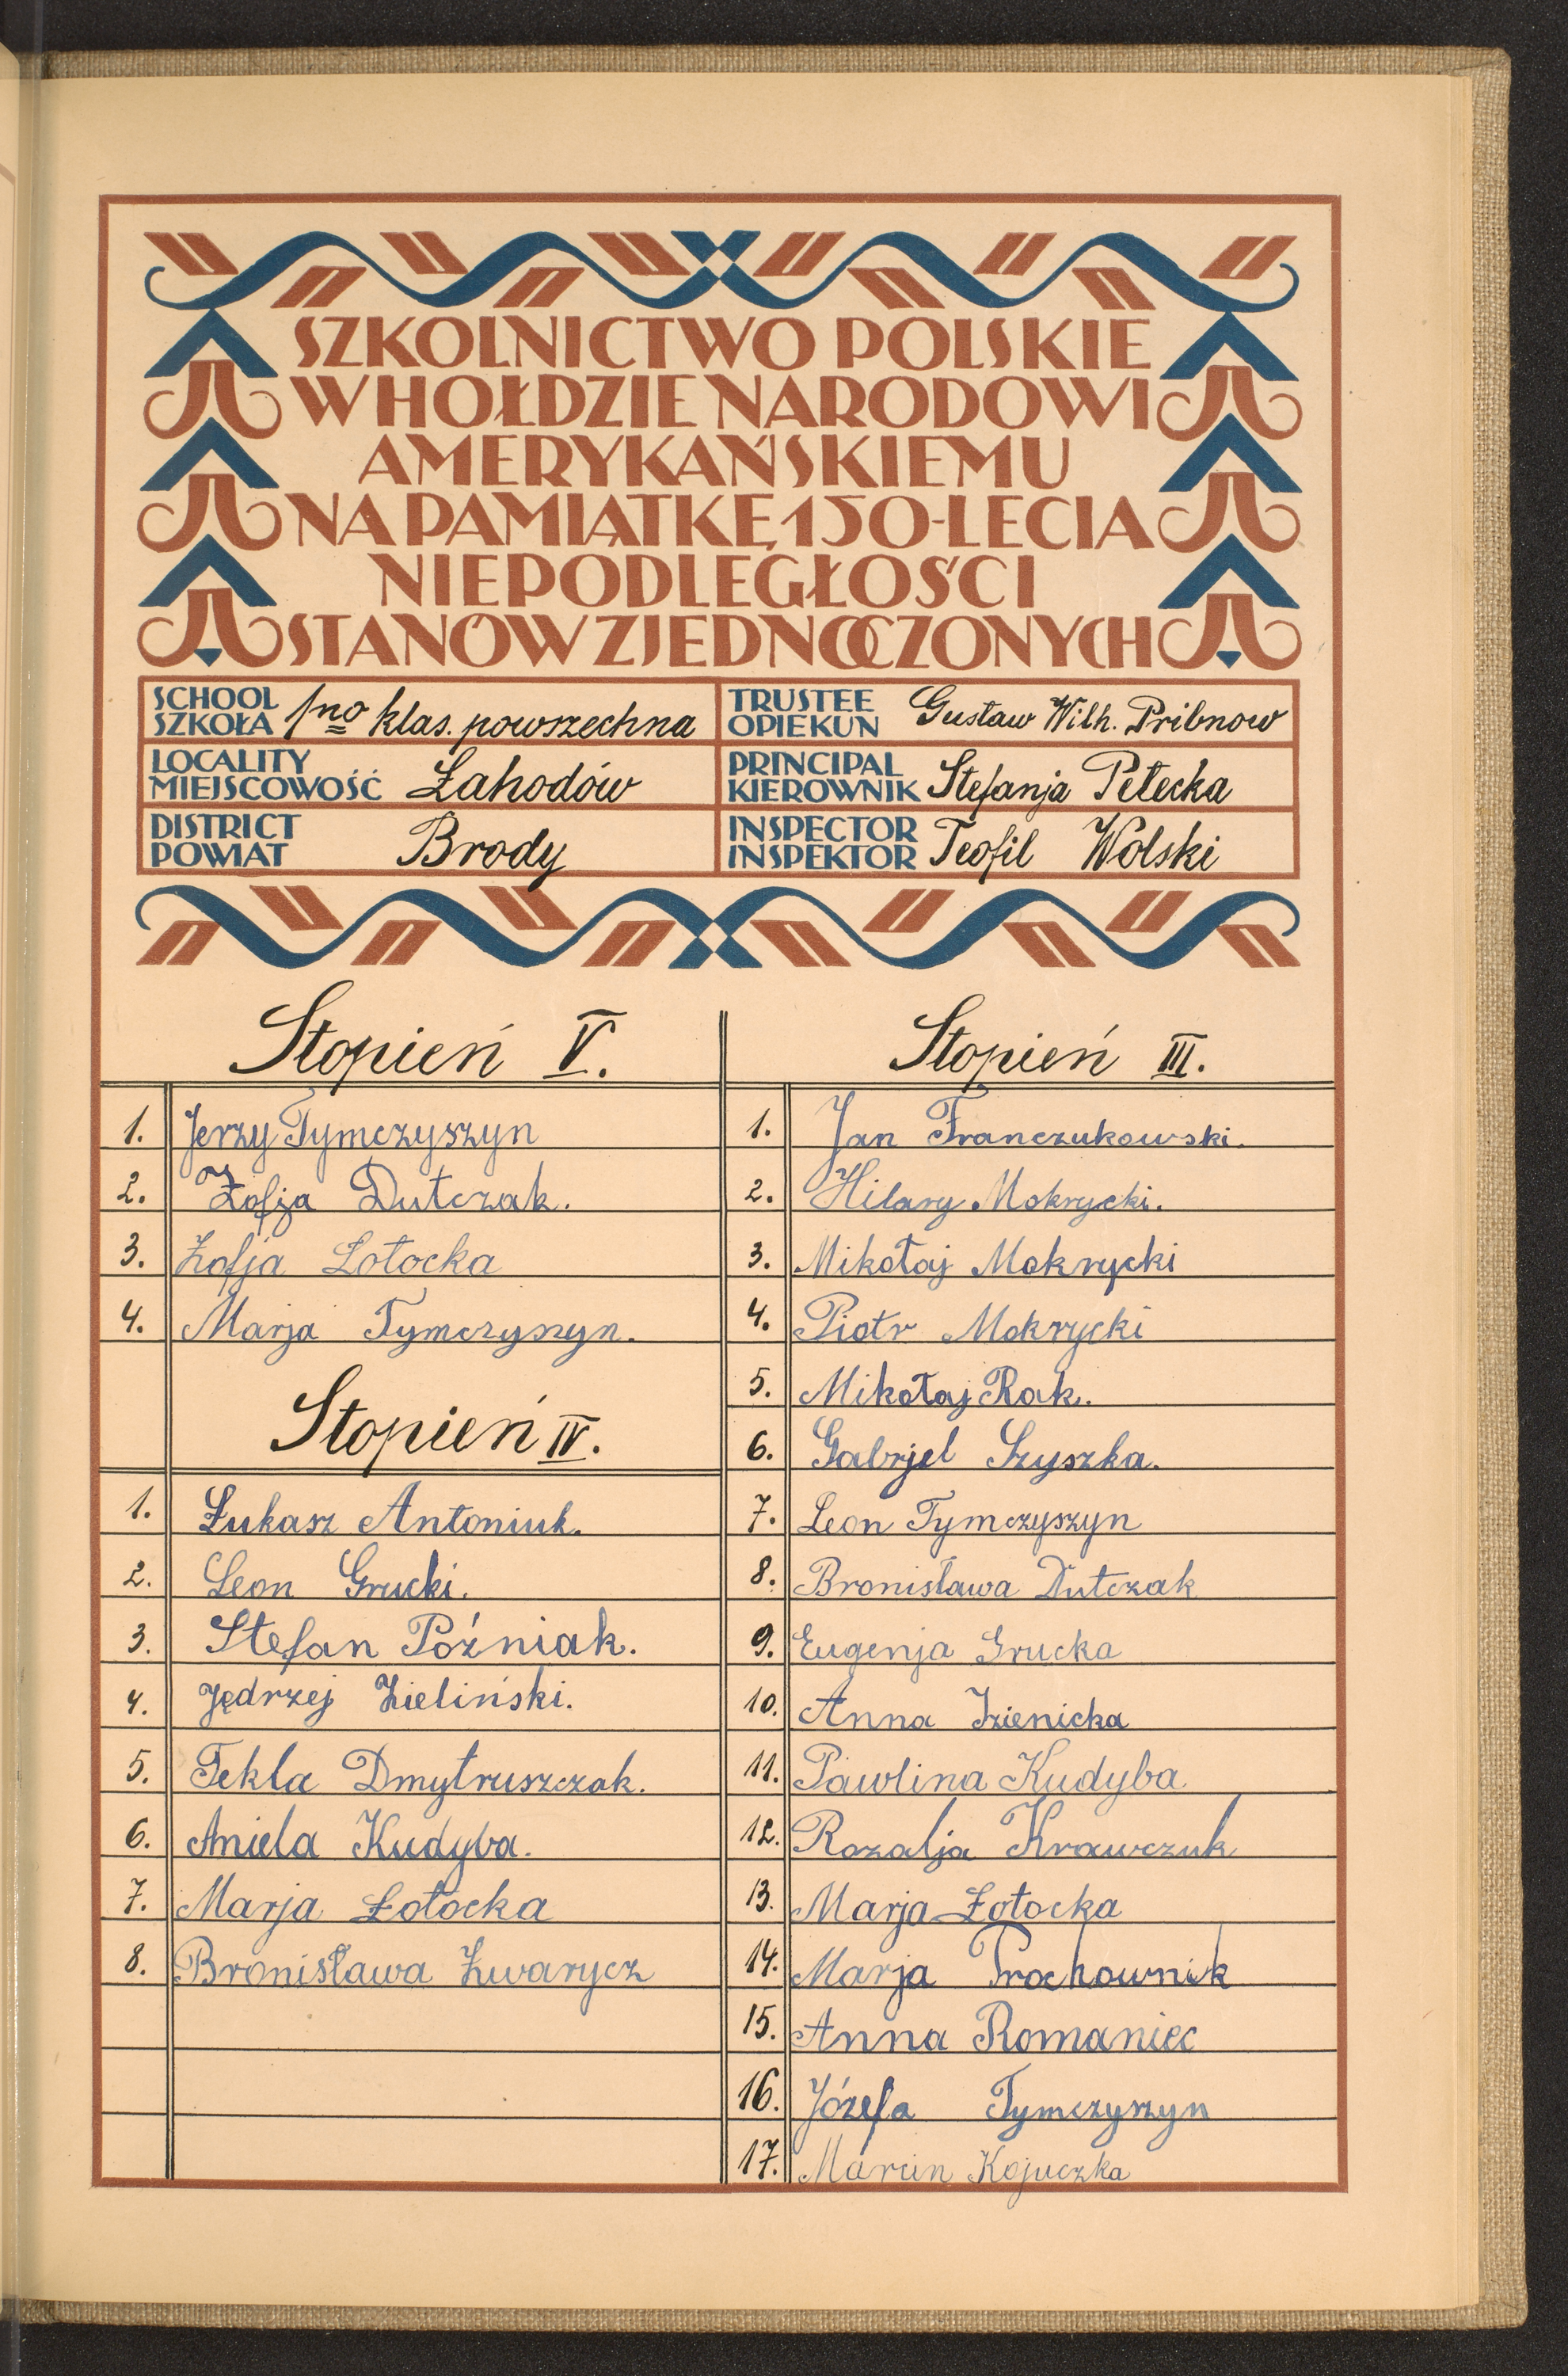 SZKOLNICTWO POLSKIE
W HOŁDZIE NARODOWI
AMERYKAŃSKIEMU
NA PAMIĄTKĘ 150-LECIA
NIEPODLEGŁOŚCI
STANÓW ZJEDNOCZONYCH
SCHOOL
SZKOŁA 1no klas. powszechna
TRUSTEE
OPIEKUN Gustaw Wilh. Pribnow
LOCALITY
MIEJSCOWOŚĆ Łahodów
PRINCIPAL
KIEROWNIK Stefanja Petecka
DISTRICT
POWIAT Brody
INSPECTOR
INSPEKTOR Teofil Wolski
Stopień V.
1. Jerzy Tymczyszyn
2. Zofja Dutczak.
3. Zofja Łotocka
4. Marja Tymczyszyn.
Stopień IV.
1. Łukasz Antoniuk.
2. Leon Grucki.
3. Stefan Poźniak.
4. Jędrzej Zieliński.
5. Tekla Dmytruszczak.
6. Aniela Kudyba.
7. Marja Łotocka
8. Bronisława Zwarycz
Stopień III.
1. Jan Franczukowski.
2. Hilary Mokrycki.
3. Mikołaj Mokrycki
4. Piotr Mokrycki
5. Mikołaj Rak.
6. Gabrjel Szyszka.
7. Leon Tymczyszyn
8. Bronisława Dutczak
9. Eugenja Grucka
10. Anna Izienicka
11. Pawlina Kudyba
12. Rozalja Krawczuk
13. Marja Łotocka
14. Marja Prochownik
15. Anna Romaniec
16. Józefa Tymczyszyn
17. Marcin Kojuczka